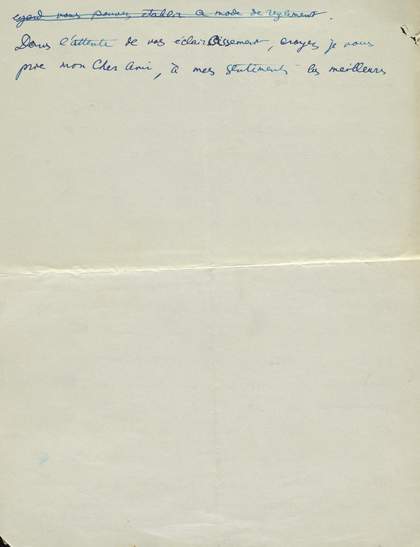 egard vous pouvez établir ce mode de reglement.
Dans l'attente de vos éclaircissement, croyez, je vous
prie mon Cher Ami, à mes sentiments les meilleurs